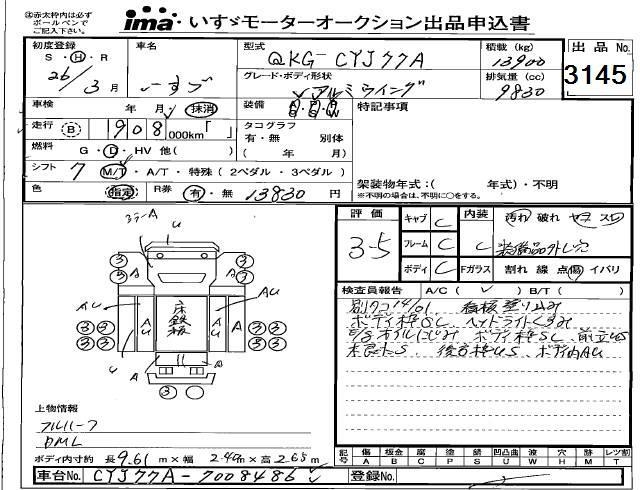 ㊟赤太枠内は必ず
ボールペンで
ご記入下さい。
ima いすゞモーターオークション出品申込書
初度登録
S・H・R
26/3月
車名
いすゞ
型式
QKG-CYJ77A
積載 (kg)
13900
出品No.
3145
グレード・ボディ形状
アルミウイング
排気量 (cc)
9830
車検
年 月 抹消
装備
特記事項
走行 B 1908000km「 」
タコグラフ
有・無 別体
( 年 月)
燃料 G・D・HV 他( )
シフト 7 M/T・A/T・特殊 ( 2ペダル・3ペダル )
架装物年式:( 年式)・不明
※不明の場合は、不明に○をする。
色 指定 R券 有・無 13830 円
評価
3-5
キャブ C
フレーム C
ボディ C
内装 C
Fガラス
汚れ 破れ ヤケ スレ
装備品外し穴
割れ 線 点傷 イバリ
検査員報告 A/C ( ✓ ) B/T ( )
別タコ14/01 看板塗り込み
ボディ枠SC ヘッドライトくすみ
ボディ枠SC 前立US
後方枠US ボディ内AU
3テーA
U
A
AU
床鉄板
③
⑤
上物情報
フルハーフ
DML
ボディ内寸約 長9.61m×幅 2.40m×高2.65m
記号 傷A 板金B 腐C 塗P 錆S 凹凸曲U 波W 穴H 跡M レツ割T
車台No. CYJ77A-7008486
登録No.